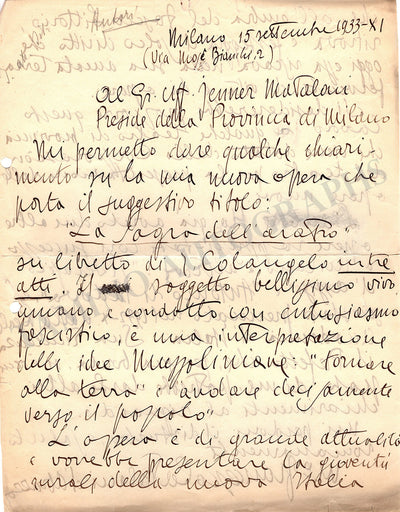 Autori
Milano 15 settembre 1933-XI
(Via Mosè Bianchi, 2)
Al Gr. Uff. Jenner Mataloni
Preside della Provincia di Milano
Mi permetto dare qualche chiari-
mento su la mia nuova opera che
porta il suggestivo titolo:
"La Sagra dell'aratro"
su libretto di I. Colangelo in tre
atti. Il soggetto bellissimo vivo
umano e condotto con entusiasmo
fascistico, è una interpretazione
delle idee Mussoliniane: "Tornare
alla terra" e andare decisamente
verso il popolo"
L'opera è di grande attualità
e vorrebbe presentare la gioventù
rurale della nuova Italia